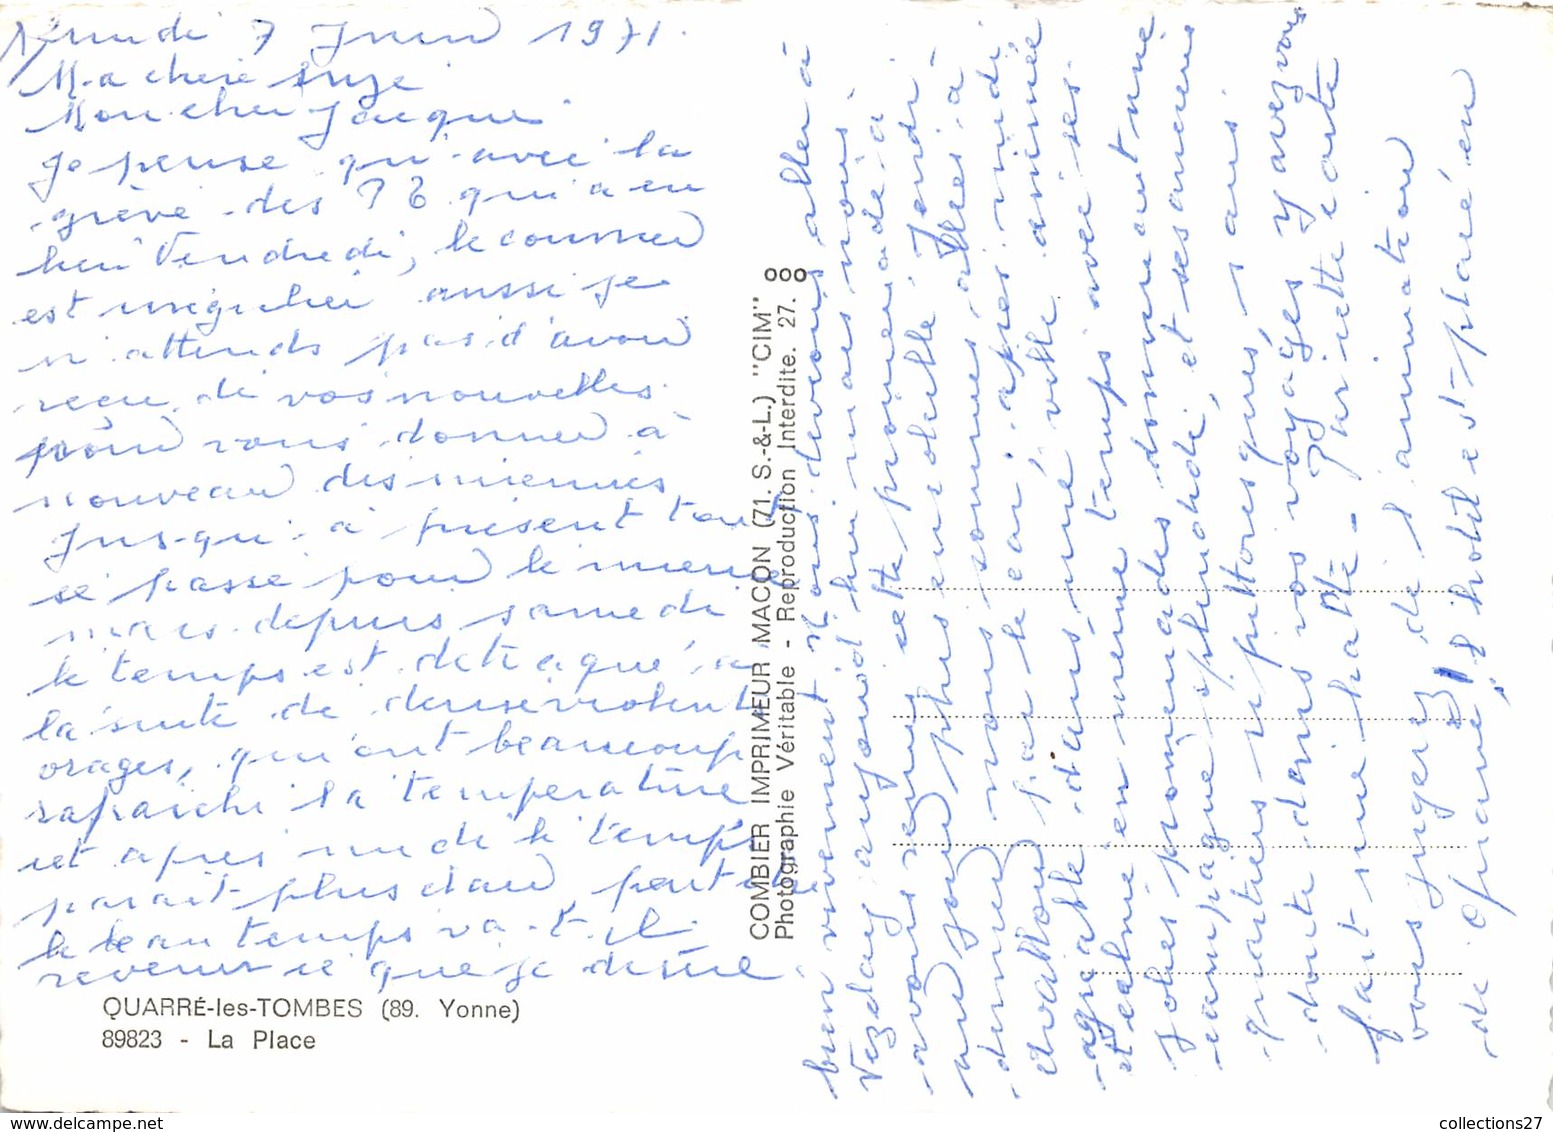 Lundi 7 Juin 1971.
Ma chère Suze
Mon cher Jacques
Je pense qu'avec la
grève des P T qui a eu
lieu Vendredi, le courrier
est irrégulier aussi je
n'attends pas d'avoir
reçu de vos nouvelles
pour vous donner à
nouveau des miennes
Jusqu'à présent tout
se passe pour le mieux
mais depuis samedi
le temps est détraqué à
la suite de deux violents
orages, qui ont beaucoup
rafraichi la température
cet après midi le temps
parait plus clair peut être
le beau temps va-t-il
revenir ce que je désire
bien vivement Nous devions aller à
Vezelay aujourd'hui mais nous
avons remis cette promenade à
un jour plus ensoleillé. Jeudi
dernier nous sommes allés à
Avallon par le car: après midi
agréable dans une ville animée
et calme en même temps avec ses
jolies promenades dominant une
campagne splendide, et ses anciens
quartiers si pittoresques, sans
doute dans vos voyages y avez vous
fait une halte - Par cette carte
vous jugerez de l'animation
de Quarré, l'hôtel est placé en
QUARRÉ-les-TOMBES (89. Yonne)
89823 - La Place
COMBIER IMPRIMEUR MACON (71. S.-&-L.) "CIM"
Photographie Véritable - Reproduction Interdite. 27.
collections27